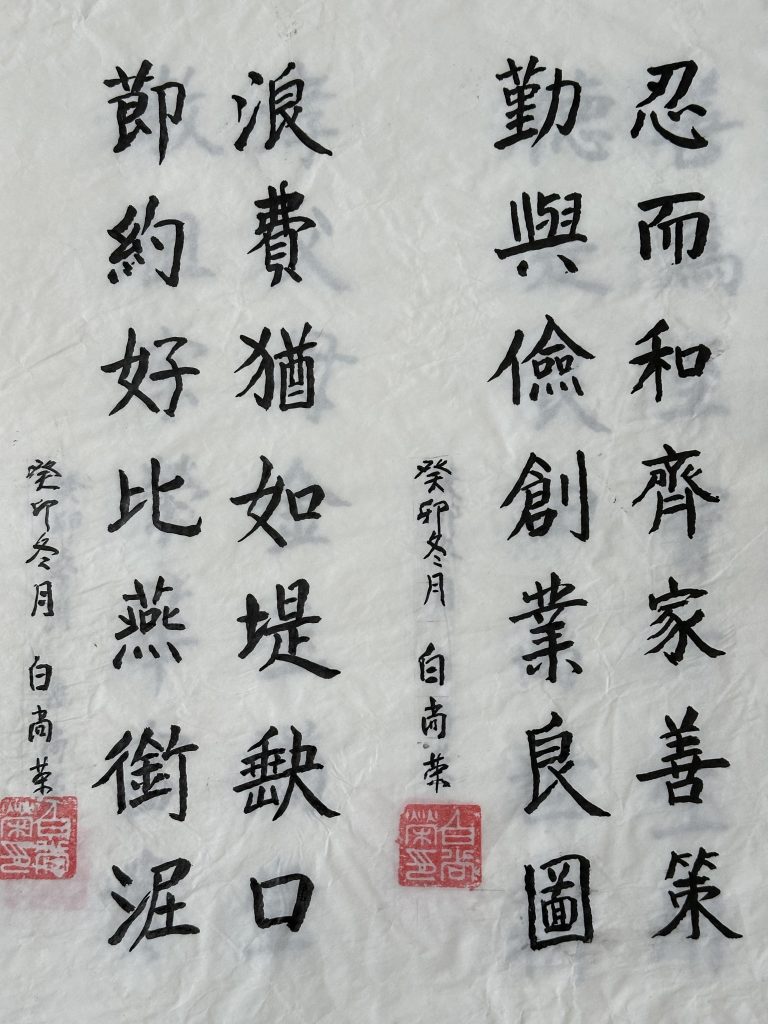 忍而和齊家善策
勤與儉創業良圖
癸卯冬月 白尚荣
白尚荣印
浪費猶如堤缺口
節約好比燕銜泥
癸卯冬月 白尚荣
白尚荣印